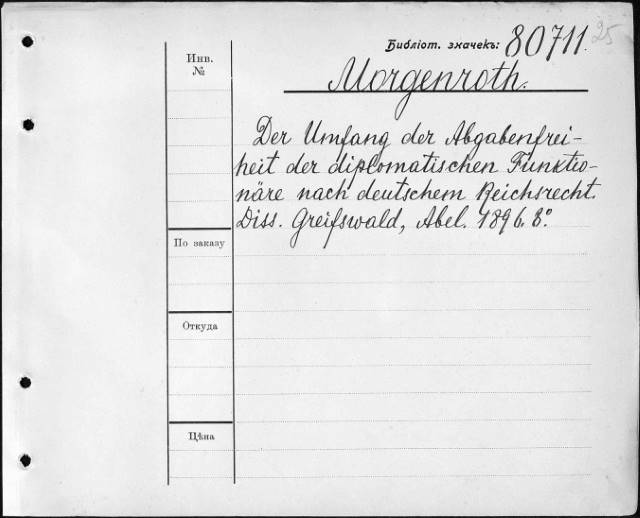 25
Библіот. значекъ: 80711.
Инв.
№
Morgenroth.
Der Umfang der Abgabenfrei-
heit der diplomatischen Funktio-
näre nach deutschem Reichsrecht.
Diss. Greifswald, Abel. 1896. 8°.
По заказу
Откуда
Цѣна